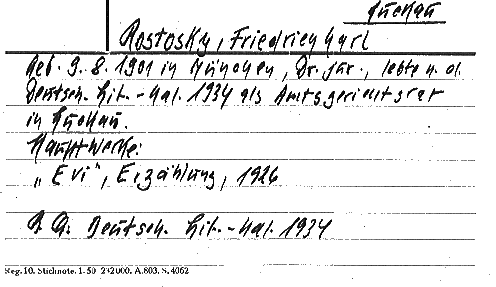 Zuckau
Rostosky, Friedrich Karl
Geb. 9. 8. 1901 in München, Dr. jur., lebte n. d.
Deutsch. Lit.-Kal. 1934 als Amtsgerichtsrat
in Zuckau.
Hauptwerke:
„Evi", Erzählung, 1926
Deutsch. Lit.-Kal. 1934
Reg. 10. Stichnote. 1. 50 232000. A.803. S. 4062